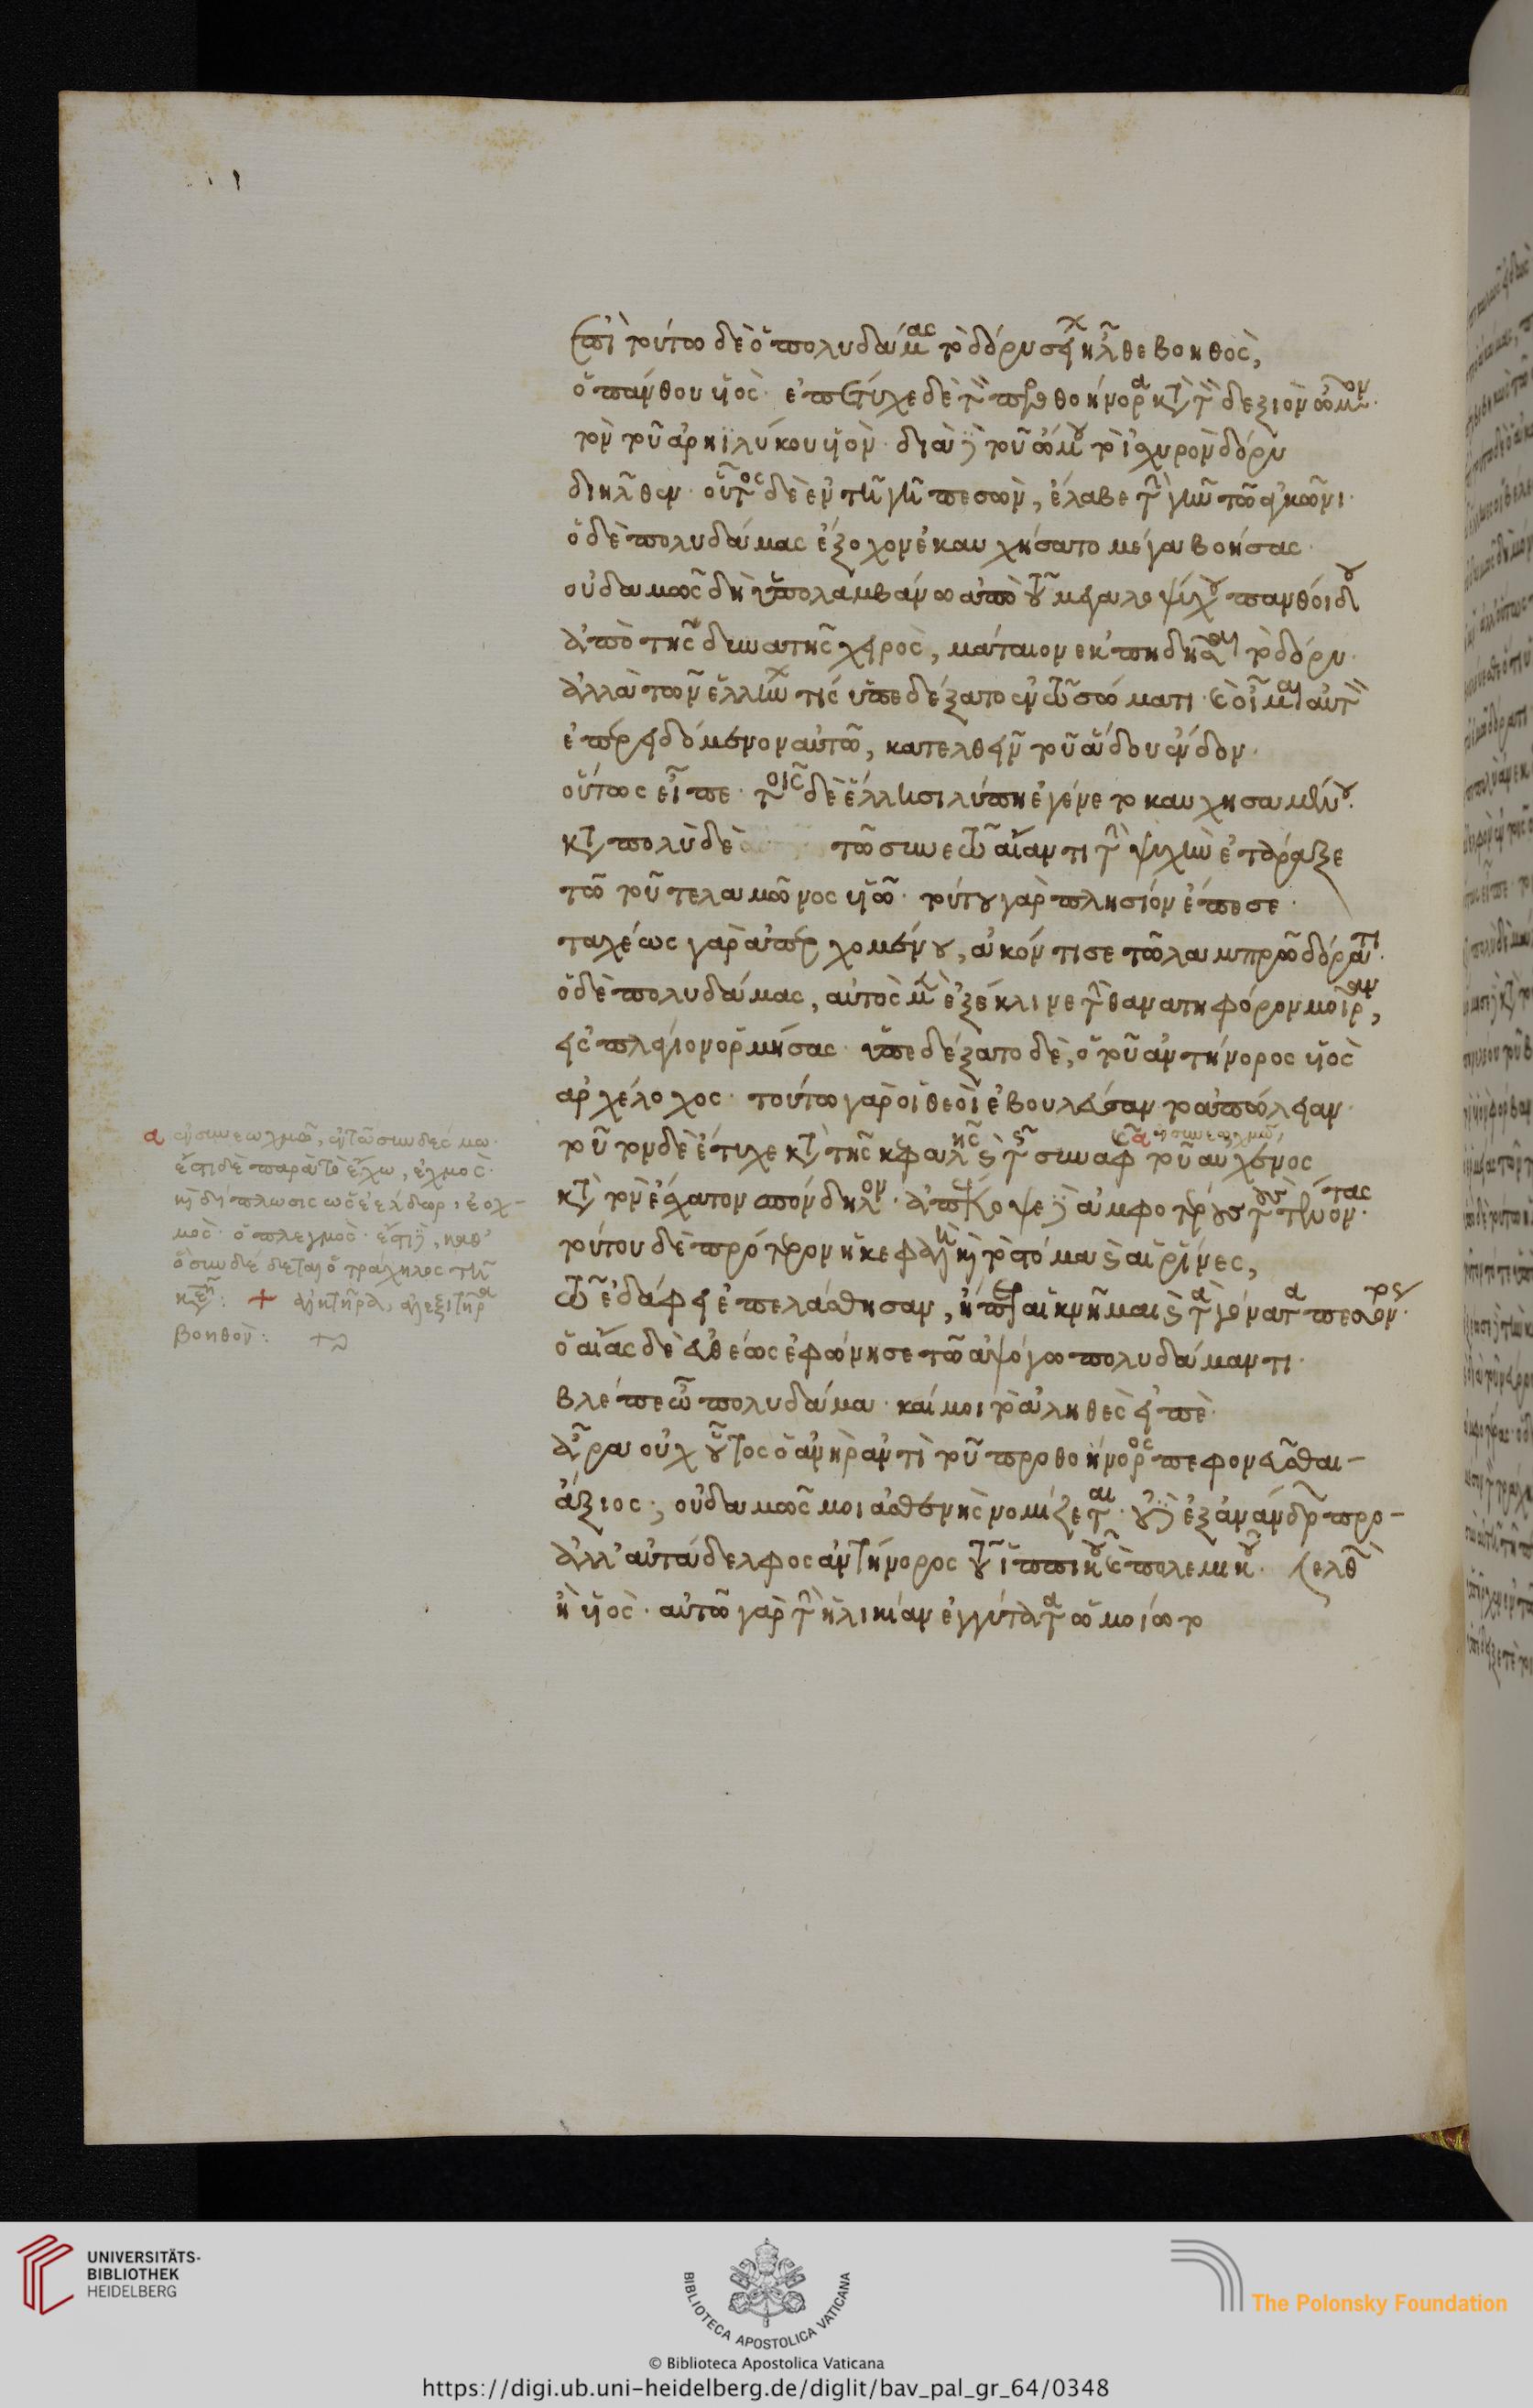 ἐπὶ τούτω δὲ ὁ πολυδάμας ἦλθε βοηθὸς,
ὁ πάνθου υἱὸς. ἐπέτυχε δὲ προθοήνορα κατὰ τὸν δεξιὸν ὦμον.
τὸν τοῦ ἀρηϊλύκου υἱὸν. διὰ δὲ τοῦ ὤμου τὸ ἰσχυρὸν δόρυ
διῆλθεν. οὗτος δὲ ἐν τῆ γῆ πεσὼν, ἔλαβε τὴν γῆν τῶ ἀγκῶνι.
ὁ δὲ πολυδάμας ἐξοχον ἐκαυχήσατο μέγα βοήσας.
οὐδαμῶς δὴ ὑπολαμβάνω ἀπὸ τοῦ μεγαλοψύχου πανθοίδου
ἀπὸ τῆς δυνατῆς χειρὸς, μάταιον ἐκπηδῆσαι τὸ δόρυ.
ἀλλὰ τῶν ἑλλήνων τίς ὑπεδέξατο ἐν τῶ σώματι. καὶ οἶμαι αὐτὸν
ἐπερειδόμενον αὐτῶ, κατελθεῖν τοῦ ἅδου ἔνδον.
οὕτως εἶπε. τοῖς δὲ ἕλλησι λύπη ἐγένετο καυχησαμένου.
καὶ πολὺ δὲ τῶ συνετῶ αἴαντι τὴν ψυχὴν ἐτάραξε
τῶ τοῦ τελαμῶνος υἱῶ. τούτου γὰρ πλησίον ἔπεσε.
ταχέως γὰρ ἀπερχομένου, ἀκόντισε τῶ λαμπρῶ δόρατι.
ὁ δὲ πολυδάμας, αὐτὸς μὲν ἐξέκλινε τὴν θανατηφόρον μοῖραν,
εἰς πλάγιον ὁρμήσας. ὑπεδέξατο δὲ, ὁ τοῦ ἀντήνορος υἱὸς
ἀρχέλοχος. τούτω γὰρ οἱ θεοὶ ἐβουλεύσαντο ἀπώλειαν.
τοῦτον δὲ ἔτυχε κατὰ τῆς κεφαλῆς καὶ τῆς συναφείας τοῦ αὐχένος
κατὰ τὸν ἔσχατον σπόνδηλον. ἀπέκοψε δὲ ἀμφοτέρους τοὺς τένοντας.
τούτου δὲ πρότερον ἡ κεφαλὴ καὶ τὸ στόμα καὶ αἱ ῥῖνες,
τῶ ἐδάφει ἐπελάσθησαν, ἤπερ αἱ κνῆμαι καὶ τὰ γόνατα πεσόντος.
ὁ αἴας δὲ εὐθέως ἐφώνησε τῶ ἀψόγω πολυδάμαντι.
βλέπε ὦ πολυδάμα. καί μοι τὸ ἀληθὲς εἰπὲ.
ἆρα οὐχ οὗτος ὁ ἀνὴρ ἀντὶ τοῦ προθοήνορος πεφονεῦσθαι
ἄξιος; οὐδαμῶς μοι ἀσθενὴς νομίζεται. οὐδὲ ἐξ ἀνάνδρων προ-
ἀλλ' αὐτάδελφος ἀντήνορος τοῦ ἱππικοῦ καὶ πολεμικοῦ. ελθὼν
ἢ υἱὸς. αὐτῶ γὰρ τὴν ἡλικίαν ἐγγύτατα ὡμοίωτο
α ἐν συνεωχμῶ, ἐν τῶ συνδέσμω.
ἔστι δὲ παρὰ τὸ ἔχω, ἐχμὸς.
καὶ διπλωσις ὡς ἐέλδωρ, ἐοχ-
μὸς. ὁ πλεγμὸς. ἔστι δὲ, καθ'
ὃ συνδέδεται ὁ τράχηλος τῆ
κεφαλῆ: +
βοηθὸν:
UNIVERSITÄTS-
BIBLIOTHEK
HEIDELBERG
BIBLIOTECA APOSTOLICA VATICANA
© Biblioteca Apostolica Vaticana
The Polonsky Foundation
https://digi.ub.uni-heidelberg.de/diglit/bav_pal_gr_64/0348